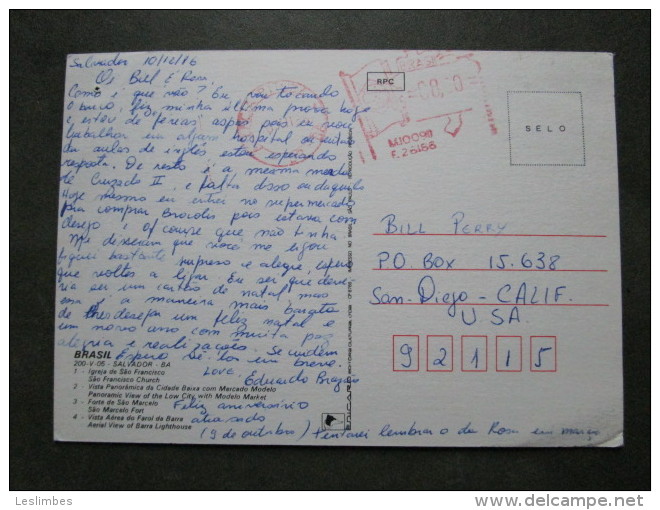 Salvador 10/12/86
Oi Bill e Rosa,
Como é que vão? Eu vou tocando
o barco, fiz minha última prova hoje
e estou de férias aspas pois eu vou
trabalhar em algum hospital ou
dar aulas de inglês, estou esperando
resposta. De resto é a mesma
de Cruzado II, e falta disso ou daquilo.
Hoje mesmo eu entrei no supermercado
pra comprar Brócolis pois estava com
desejo e of course que não tinha.
Me disseram que você me ligou
fiquei bastante surpreso e alegre, espero
que voltes a ligar. Eu sei que deve-
ria ser um cartão de natal mas
essa é a maneira mais barata
de lhes desejar um feliz natal e
um novo ano com muita paz
alegria e realizações. Se cuidem
Espero vê-los em breve.
Love,
Eduardo
Feliz aniversário
atrasado
(9 de outubro) Tentarei lembrar o da Rosa em março
BRASIL
200-V-05 - SALVADOR - BA
1 - Igreja de São Francisco
São Francisco Church
2 - Vista Panorâmica da Cidade Baixa com Mercado Modelo
Panoramic View of the Low City, with Modelo Market
3 - Forte de São Marcelo
São Marcelo Fort
4 - Vista Aérea do Farol da Barra
Aerial View of Barra Lighthouse
RPC
BRASIL
SELO
BILL PERRY
P.O. BOX 15.638
San Diego - CALIF.
USA.
9 2 1 1 5
Leslimbes
delcampe.net